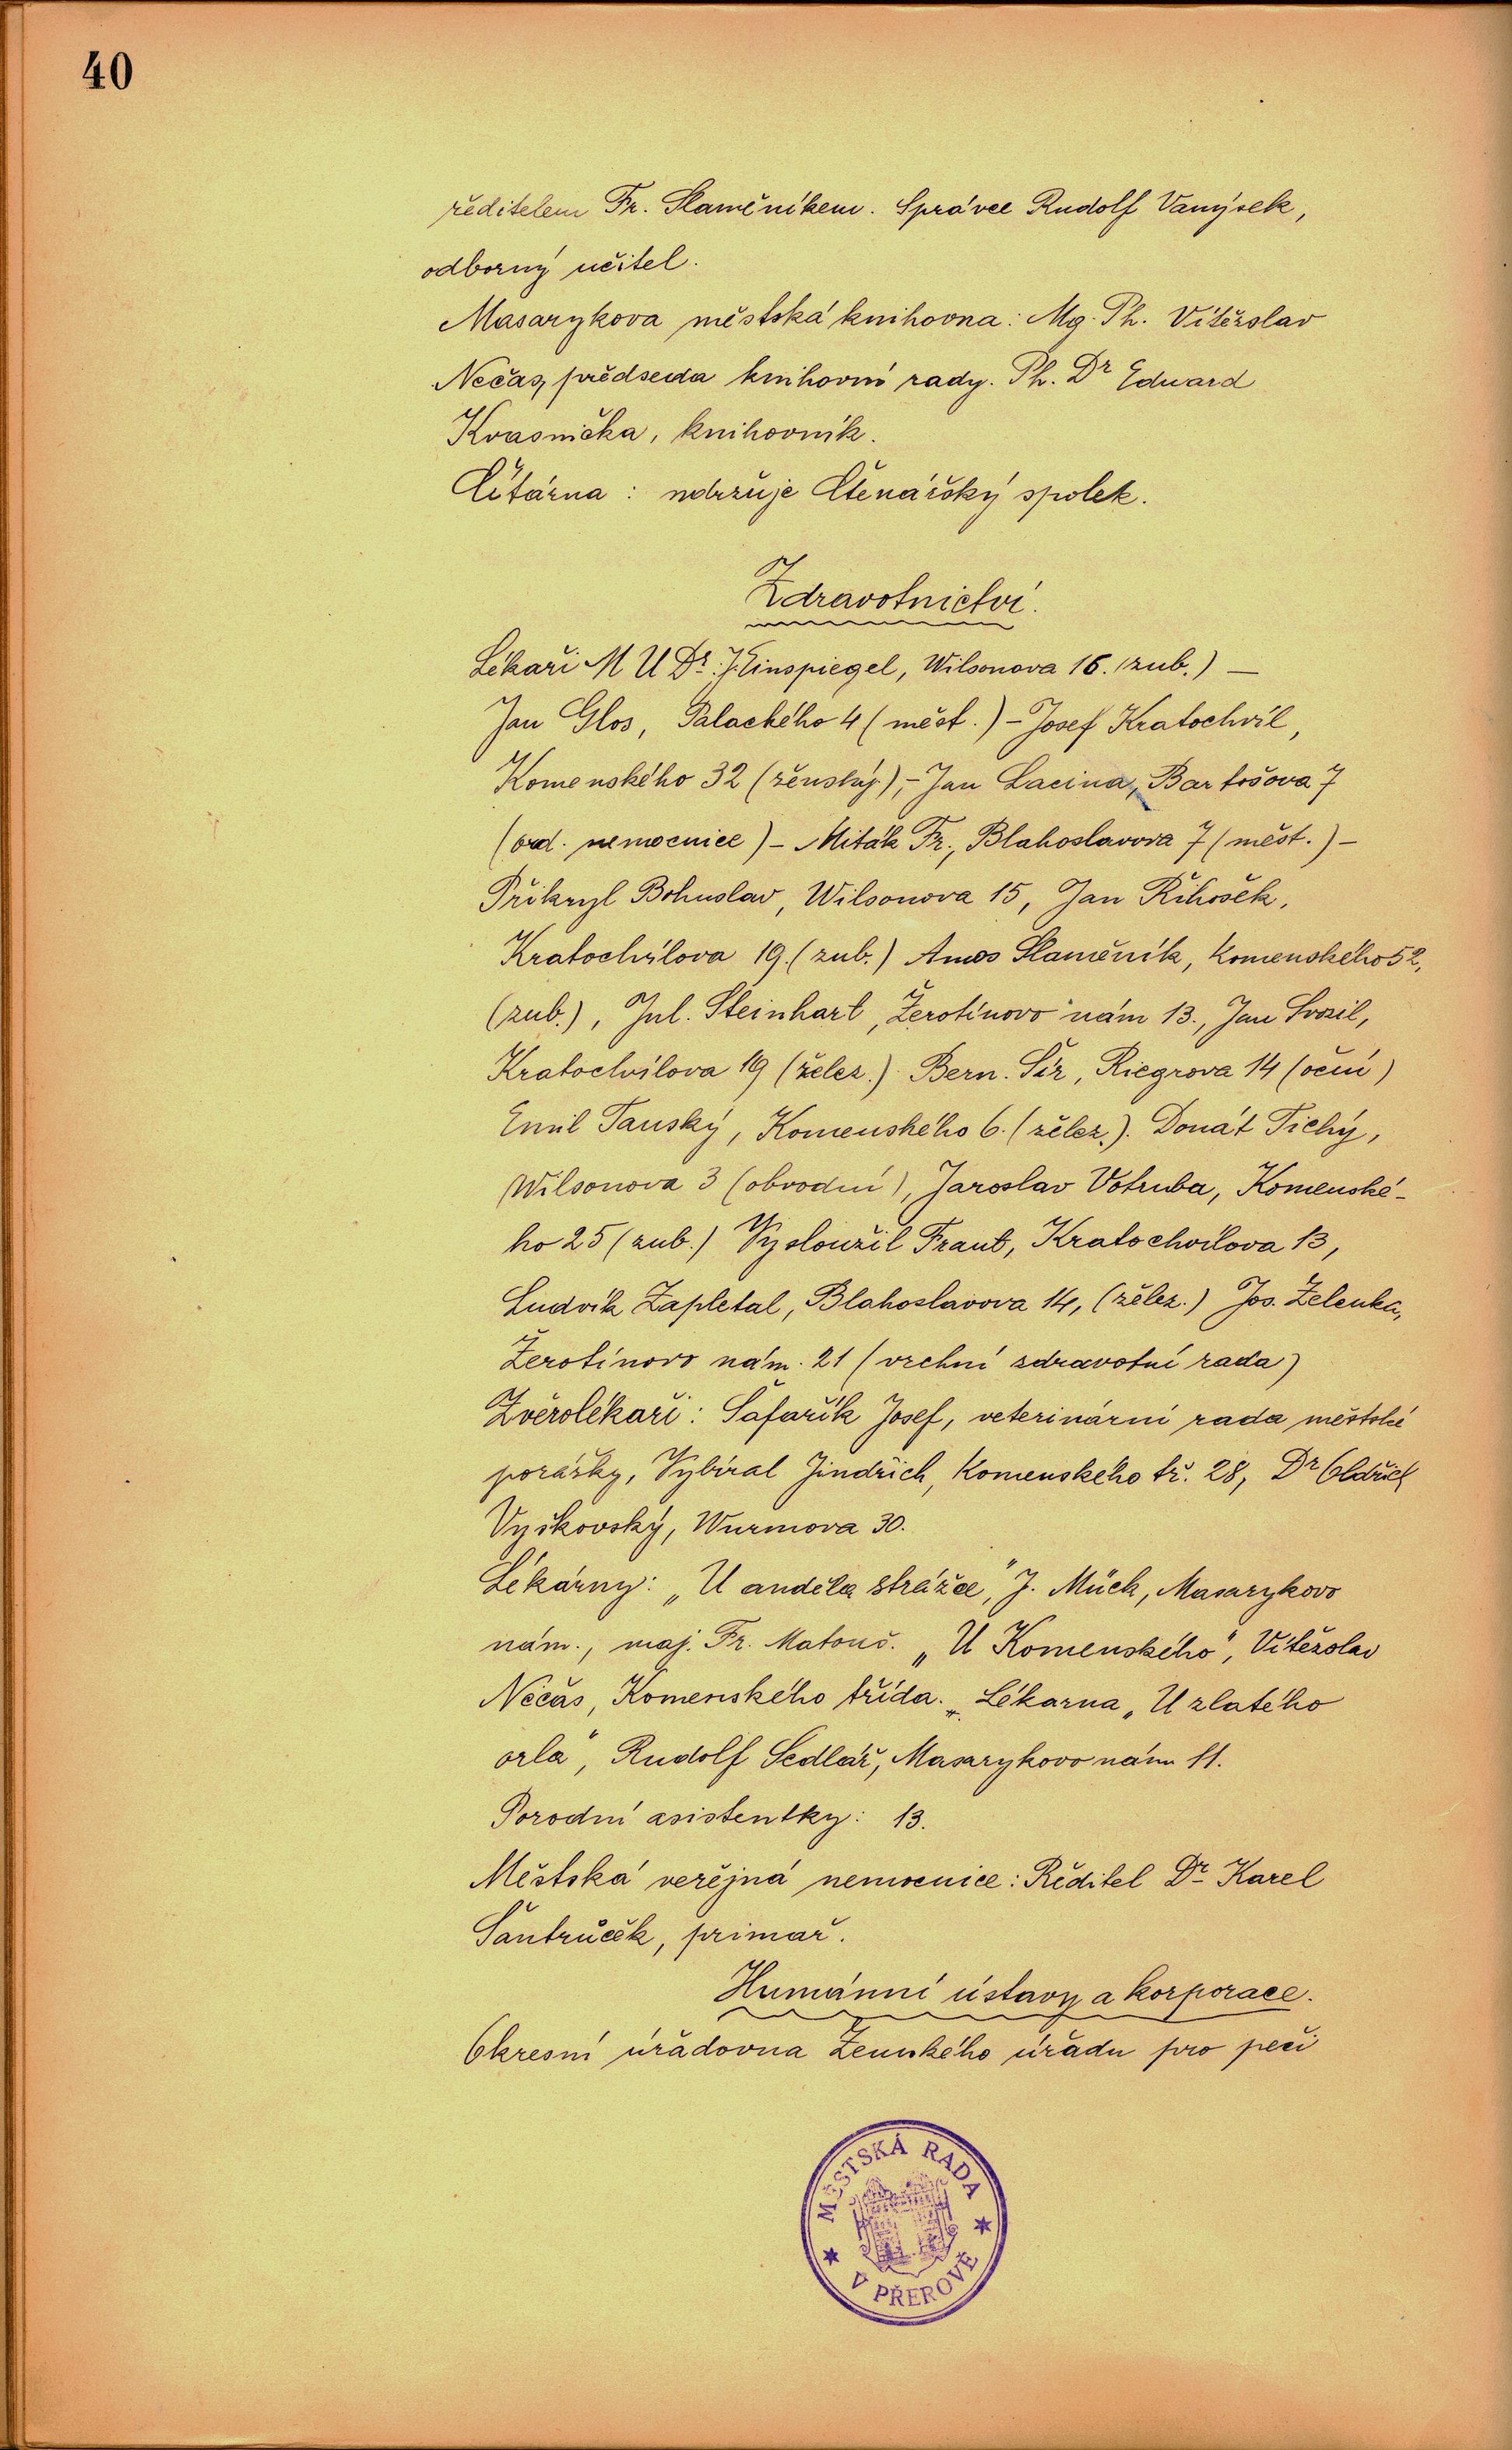 40
ředitelem Fr. Slaměníkem. Správce Rudolf Vanýsek,
odborný učitel.
Masarykova městská knihovna: Mg. Ph. Vítězslav
Nečas, předseda knihovní rady. Ph. Dr Eduard
Kvasnička, knihovník.
Čítárna: udržuje Čtenářský spolek.
Zdravotnictví.
Lékaři M U Dr. J. Einspiegel, Wilsonova 16. (zub.) –
Jan Glos, Palackého 4 (měst.) – Josef Kratochvíl,
Komenského 32 (ženský), – Jan Lacina, Bartošova 7
(ord. nemocnice) – Miták Fr., Blahoslavova 7 (měst.) –
Přikryl Bohuslav, Wilsonova 15, Jan Říhošek,
Kratochvílova 19. (zub.) Amos Slaměník, Komenského 52,
(zub.), Jul. Steinhart, Žerotínovo nám 13., Jan Svozil,
Kratochvílova 19 (želez.) Bern. Šír, Riegrova 14 (oční)
Emil Tauský, Komenského 6. (želez.). Donát Tichý,
Wilsonova 3 (obvodní), Jaroslav Votruba, Komenské-
ho 25 (zub.) Vysloužil Frant, Kratochvílova 13,
Ludvík Zapletal, Blahoslavova 14, (želez.) Jos. Zelenka,
Žerotínovo nám. 21 (vrchní zdravotní rada)
Zvěrolékaři: Šafařík Josef, veterinární rada městské
porážky, Vybíral Jindřich, Komenského tř. 28, Dr Oldřich
Vyškovský, Wurmova 30.
Lékárny: „U anděla strážce", J. Mück, Masarykovo
nám., maj. Fr. Matouš. „U Komenského", Vítězslav
Nečas, Komenského třída. Lékarna „U zlatého
orla", Rudolf Sedlář, Masarykovo nám 11.
Porodní asistentky: 13.
Městská veřejná nemocnice: Ředitel Dr. Karel
Šantrůček, primař.
Humánní ústavy a korporace.
Okresní úřadovna Zemského úřadu pro peči
MĚSTSKÁ RADA
V PŘEROVĚ